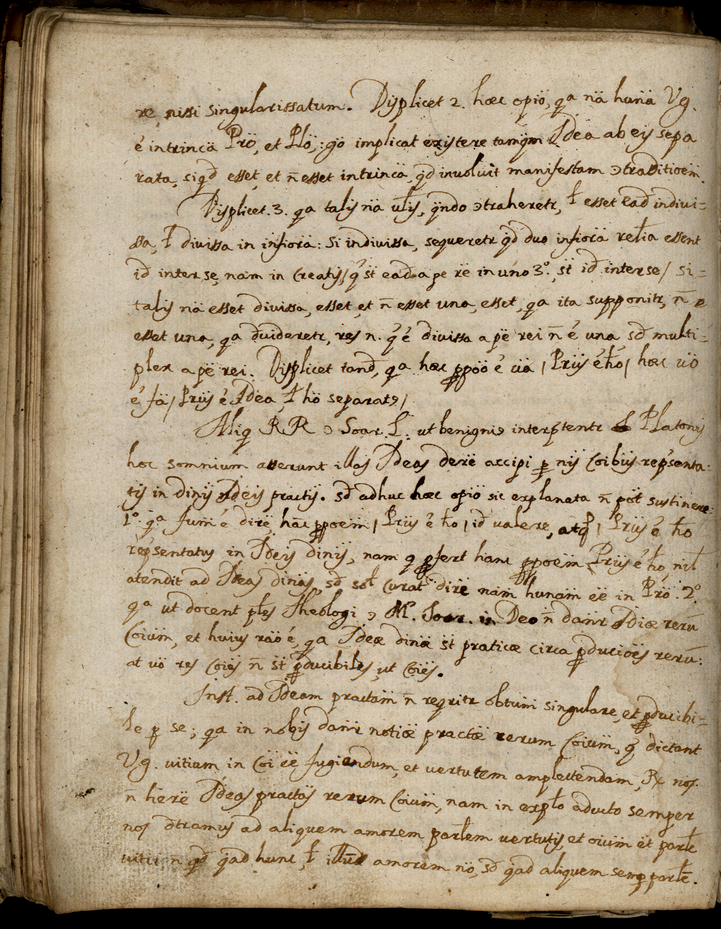 re, nisi singularissatum. Displicet 2. hæc opiõ, qa nã hunã Vg.
ẽ intrincã Prõ, et Plõ: gõ implicat existere tamqm Idẽa ab eis sepa
rata, siqd esset, et ñ esset intrincã, qd involuit manifestam ɔtradttioẽm.
Displicet. 3. qa talis nã ulis, qndo ɔtraheretr, ł esset eãd indivi-
ssa, ł divissa in infiorã: Si indivissa, sequeretr qd duo infiorã relia essent
id inter se, nam in Creatis/ q st eadẽ a pe rẽ in uno 3º, st id inter se/ si-
talis nã esset divissa, esset et ñ esset una, esset, qa ita supponitr, ñ
esset una, qa dividerétr, res n. q ẽ divissa a pẽ rei ñ ẽ una, sd multi-
plex a pẽ rei. Displicet tand, qa hæc ppõo ẽ uã, / Priis ẽ hõ / hæc uõ
ẽ fã, / Priis ẽ Idea, ł hõ separats /
Aliq RR ɔ Soar. L. ut benignis interptentr Platonis
hoc somnium asserunt illas Ideas derẽ accipi p nis Coibus repsenta-
tis in dinis Ideis practis. sd adhuc hæc opiõ sic explanata ñ pot sustinere
1º qa sum ẽ dirẽ hanc ppoẽm, / Priis ẽ hõ, id valere, atq, / Priis ẽ hõ
repsentatus in Ideis dinis, nam q pfert hanc ppoẽm, Priis ẽ hõ, nil
atendit ad Ideas dinas, sd sol curat dire nam hunam eẽ in Prõ. 2º
qa ut docent ples Theologi ɔ M. Soar. in Deo ñ dantr Idiæ rerũ
Coium, et huius raõ ẽ, qa Ideæ dinæ st praticæ circa pducioẽs rerũ:
at uõ res Coẽs ñ st pducibiles, ut Coẽs.
Inst. ad Ideam practam ñ requiritr obtum singulare, et pducibi-
le p se; qa in nobis dantr notiæ practæ rerum Coium, q dictant
Vg. vitium in Coi eẽ fugiendum, et vertutem amplectendam, R. nos
ñ herẽ Ideas practis rerum Coium, nam in explo aducto semper
nos dtramus ad aliquem amorem parlem vertutis et oium et parle
vitii n qd qad hunc, ł illud amorem nõ, sd qad aliquem semp parle.